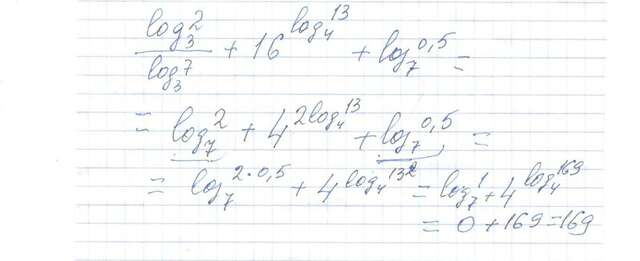 log₃2/log₃7 + 16^(log₄13) + log₇0,5 =
= log₇2 + 4^(2log₄13) + log₇0,5 =
= log₇2·0,5 + 4^(log₄13²) = log₇1 + 4^(log₄169)
= 0 + 169 = 169